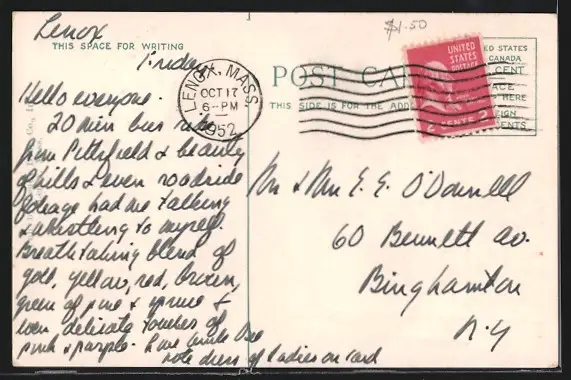 Lenox
THIS SPACE FOR WRITING
Friday
Hello everyone.
20 min bus ride
from Pittsfield & beauty
of hills & even roadside
foliage had me talking
& whistling to myself.
Breath taking blend of
gold, yellow, red, brown,
green of pine & spruce &
even delicate touches of
pink & purple.
note dress of ladies on card
$1.50
LENOX, MASS.
OCT 17
6-PM
1952
POST CA
THIS SIDE IS FOR THE ADD
UNITED
STATES
POSTAGE
2 CENTS 2
ED STATES
CANADA
CENT
ACE
HERE
EIGN
CENTS
Mr & Mrs E. E. O'Donnell
60 Bennett Av.
Binghamton
N.Y